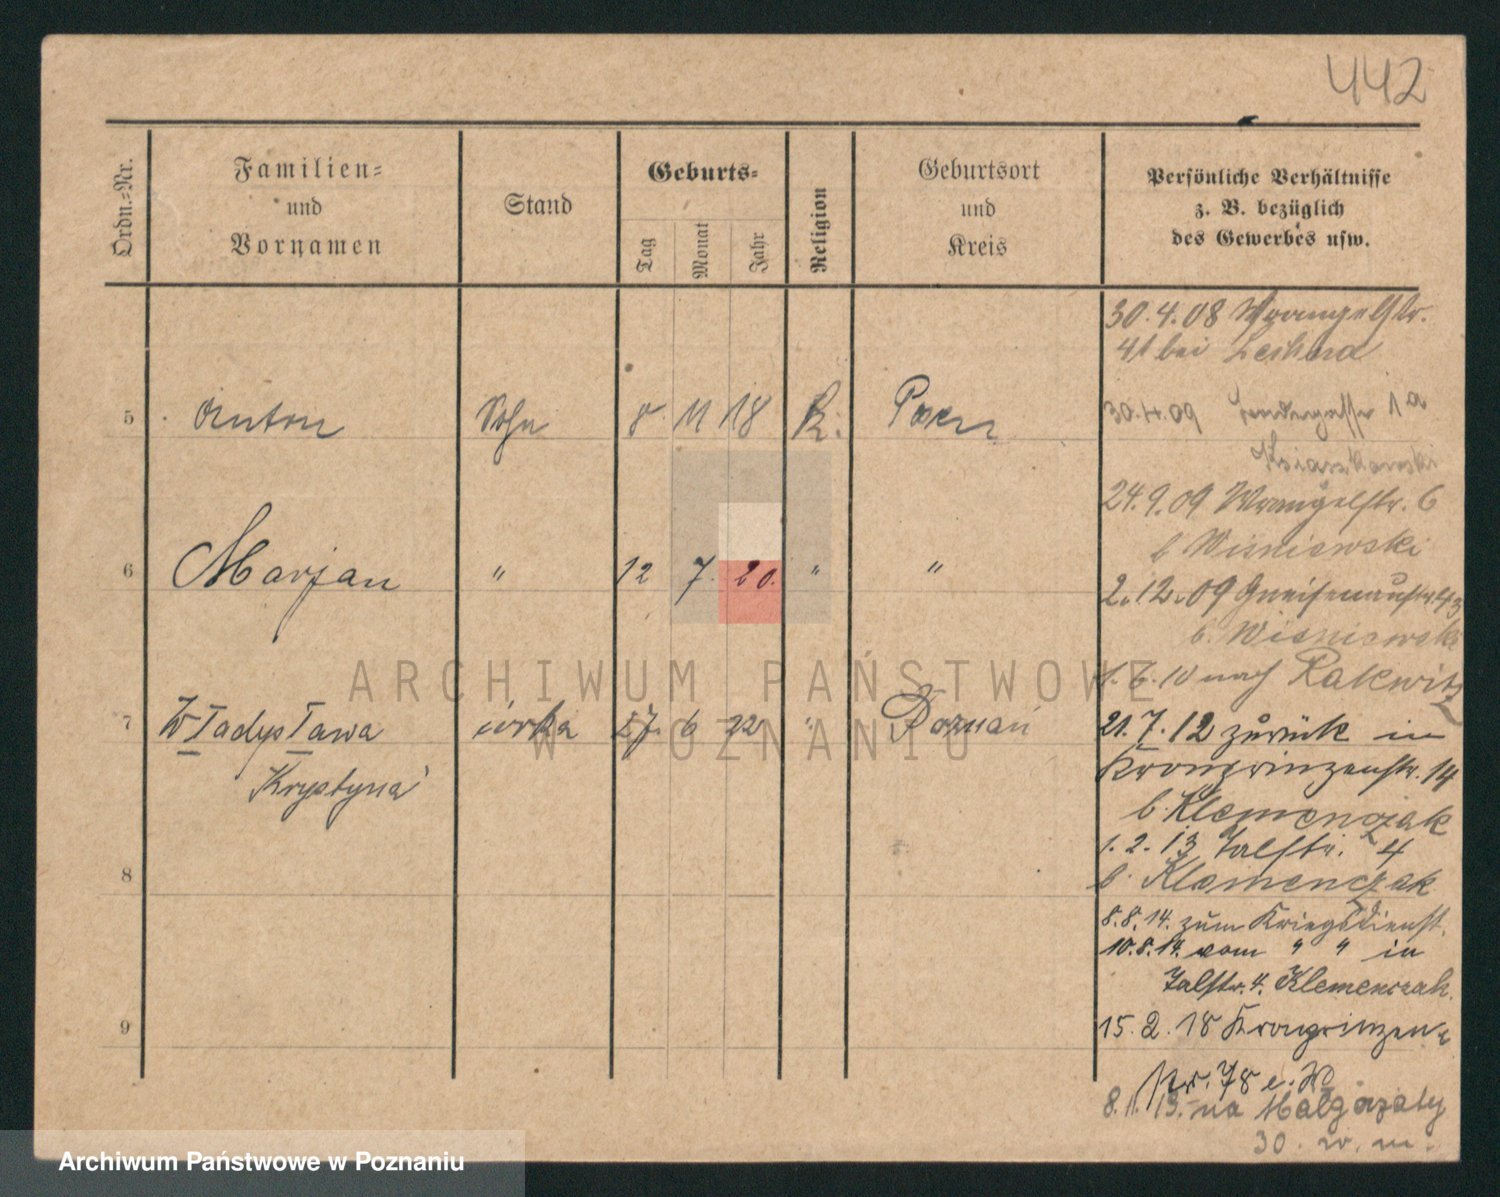 442
Ordn.-Nr.
Familien-
und
Vornamen
Stand
Geburts-
Tag
Monat
Jahr
Religion
Geburtsort
und
Kreis
Persönliche Verhältnisse
z. B. bezüglich
des Gewerbes usw.
30.4.08 Wrangelstr.
41 bei
5 Anton Sohn 8 11 18 K. Posen
30.4.09 1a
Ksiaszkowski
24.9.09 Wrangelstr. 6
b Wisniewski
6 Marjan " 12 7. 20. " "
2.12.09 Gneisenaustr. 43
b. Wisniewski
1.6.10 nach Rakwitz
7 Władysława córka 27. 6 22 " Poznań
Krystyna
21.7.12 zurück in
Kronprinzenstr. 14
b. Klemenczak
1.2.13 Talstr. 4
b. Klemenczak
8
8.8.14. zum Kriegsdienst.
10.8.14. vom " " in
Talstr. 4. Klemenczak.
9
15.2.18 Kronprinzen-
str. 78 e. W
8.11.19. na Małgorzaty
30. w. m.
ARCHIWUM PAŃSTWOWE
W POZNANIU
Archiwum Państwowe w Poznaniu